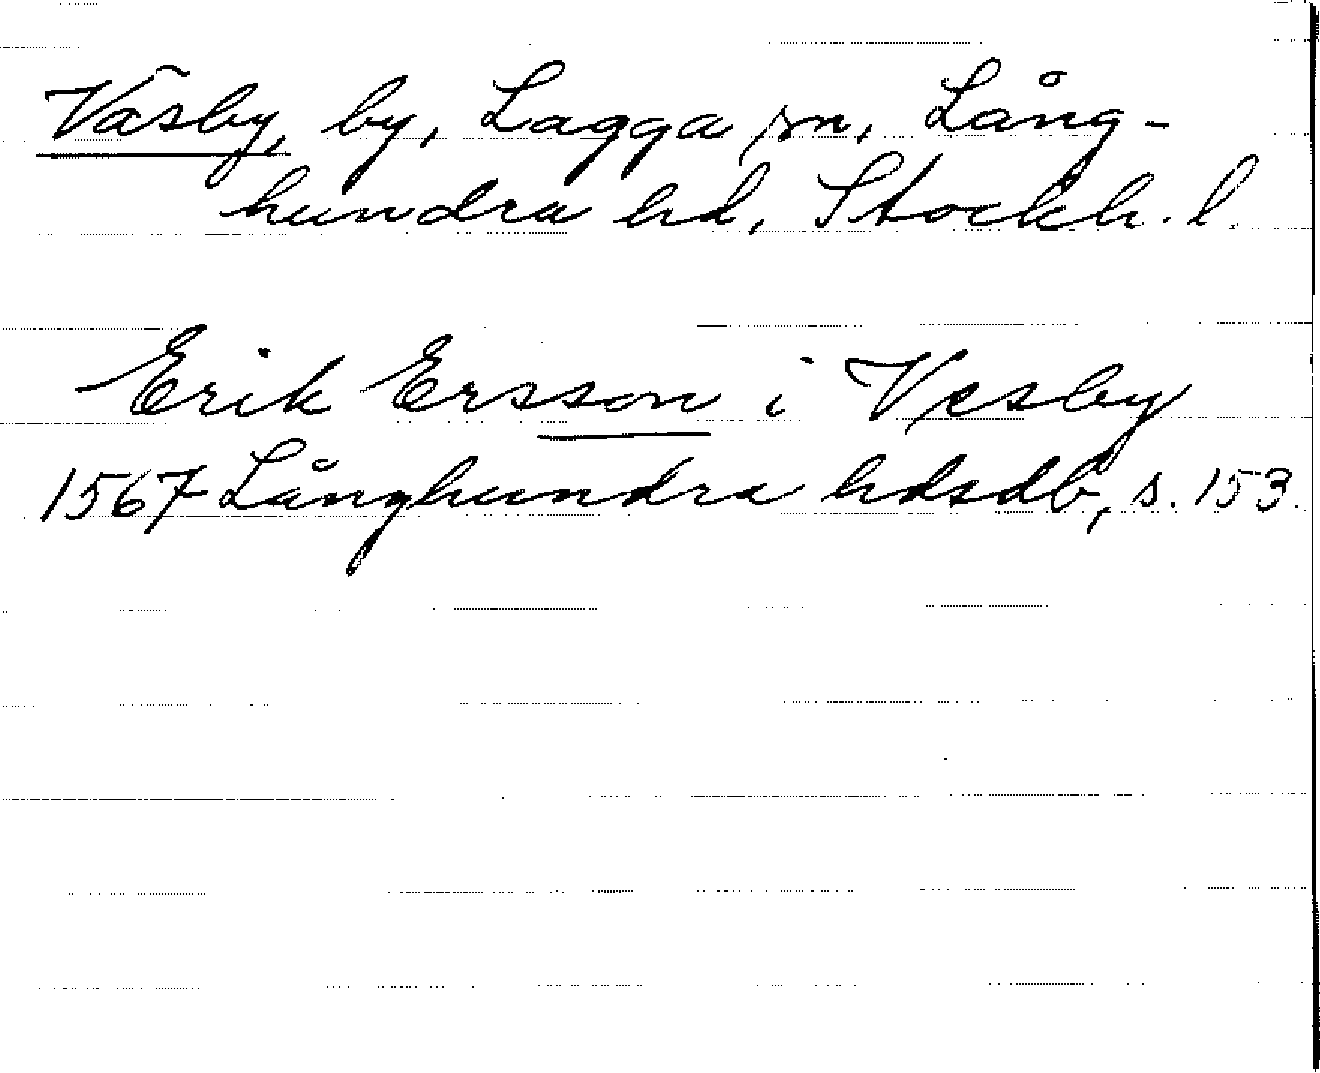 Väsby, by, Lagga sn, Lång-
hundra hd, Stockh. l.
Erik Ersson i Vesby
1567 Långhundra hdsdb, s. 153.